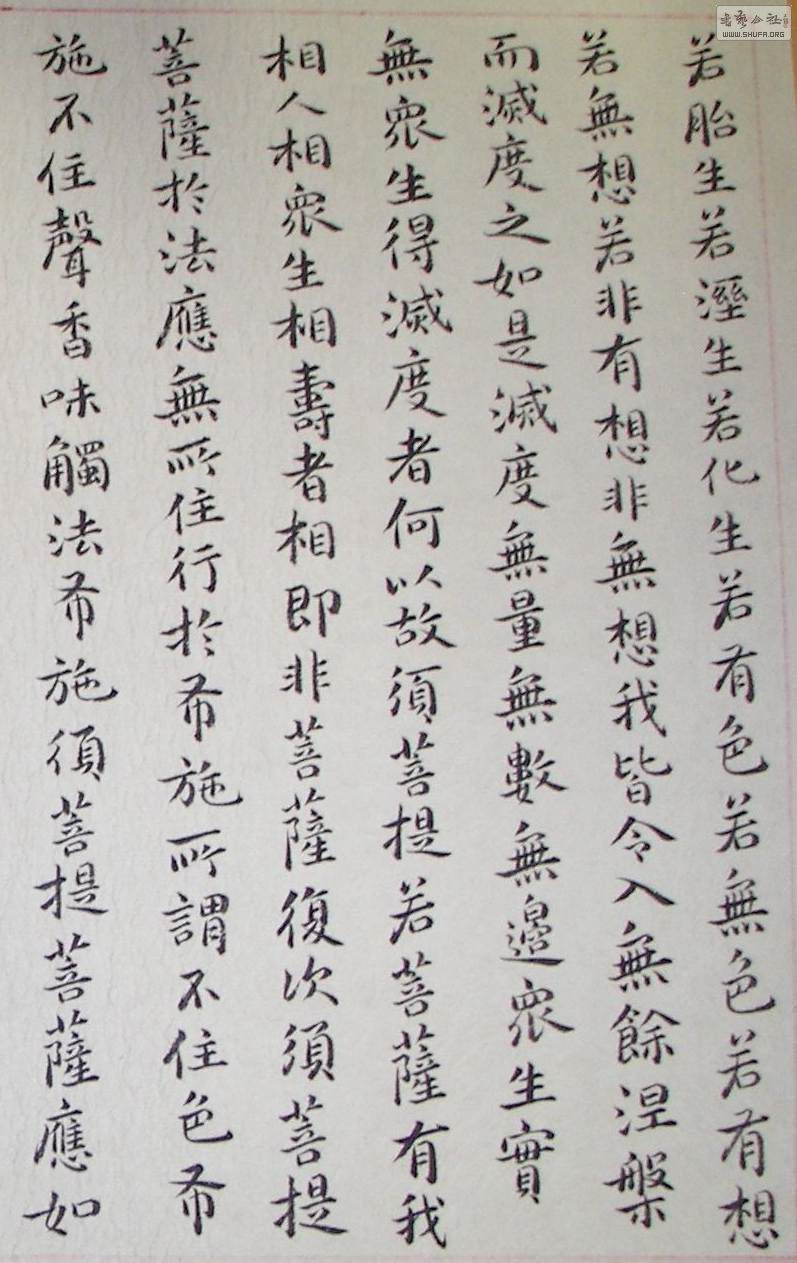 若胎生若溼生若化生若有色若無色若有想
若無想若非有想非無想我皆令入無餘涅槃
而滅度之如是滅度無量無數無邊眾生實
無眾生得滅度者何以故須菩提若菩薩有我
相人相眾生相壽者相即非菩薩復次須菩提
菩薩於法應無所住行於布施所謂不住色布
施不住聲香味觸法布施須菩提菩薩應如
书艺公社
WWW.SHUFA.ORG